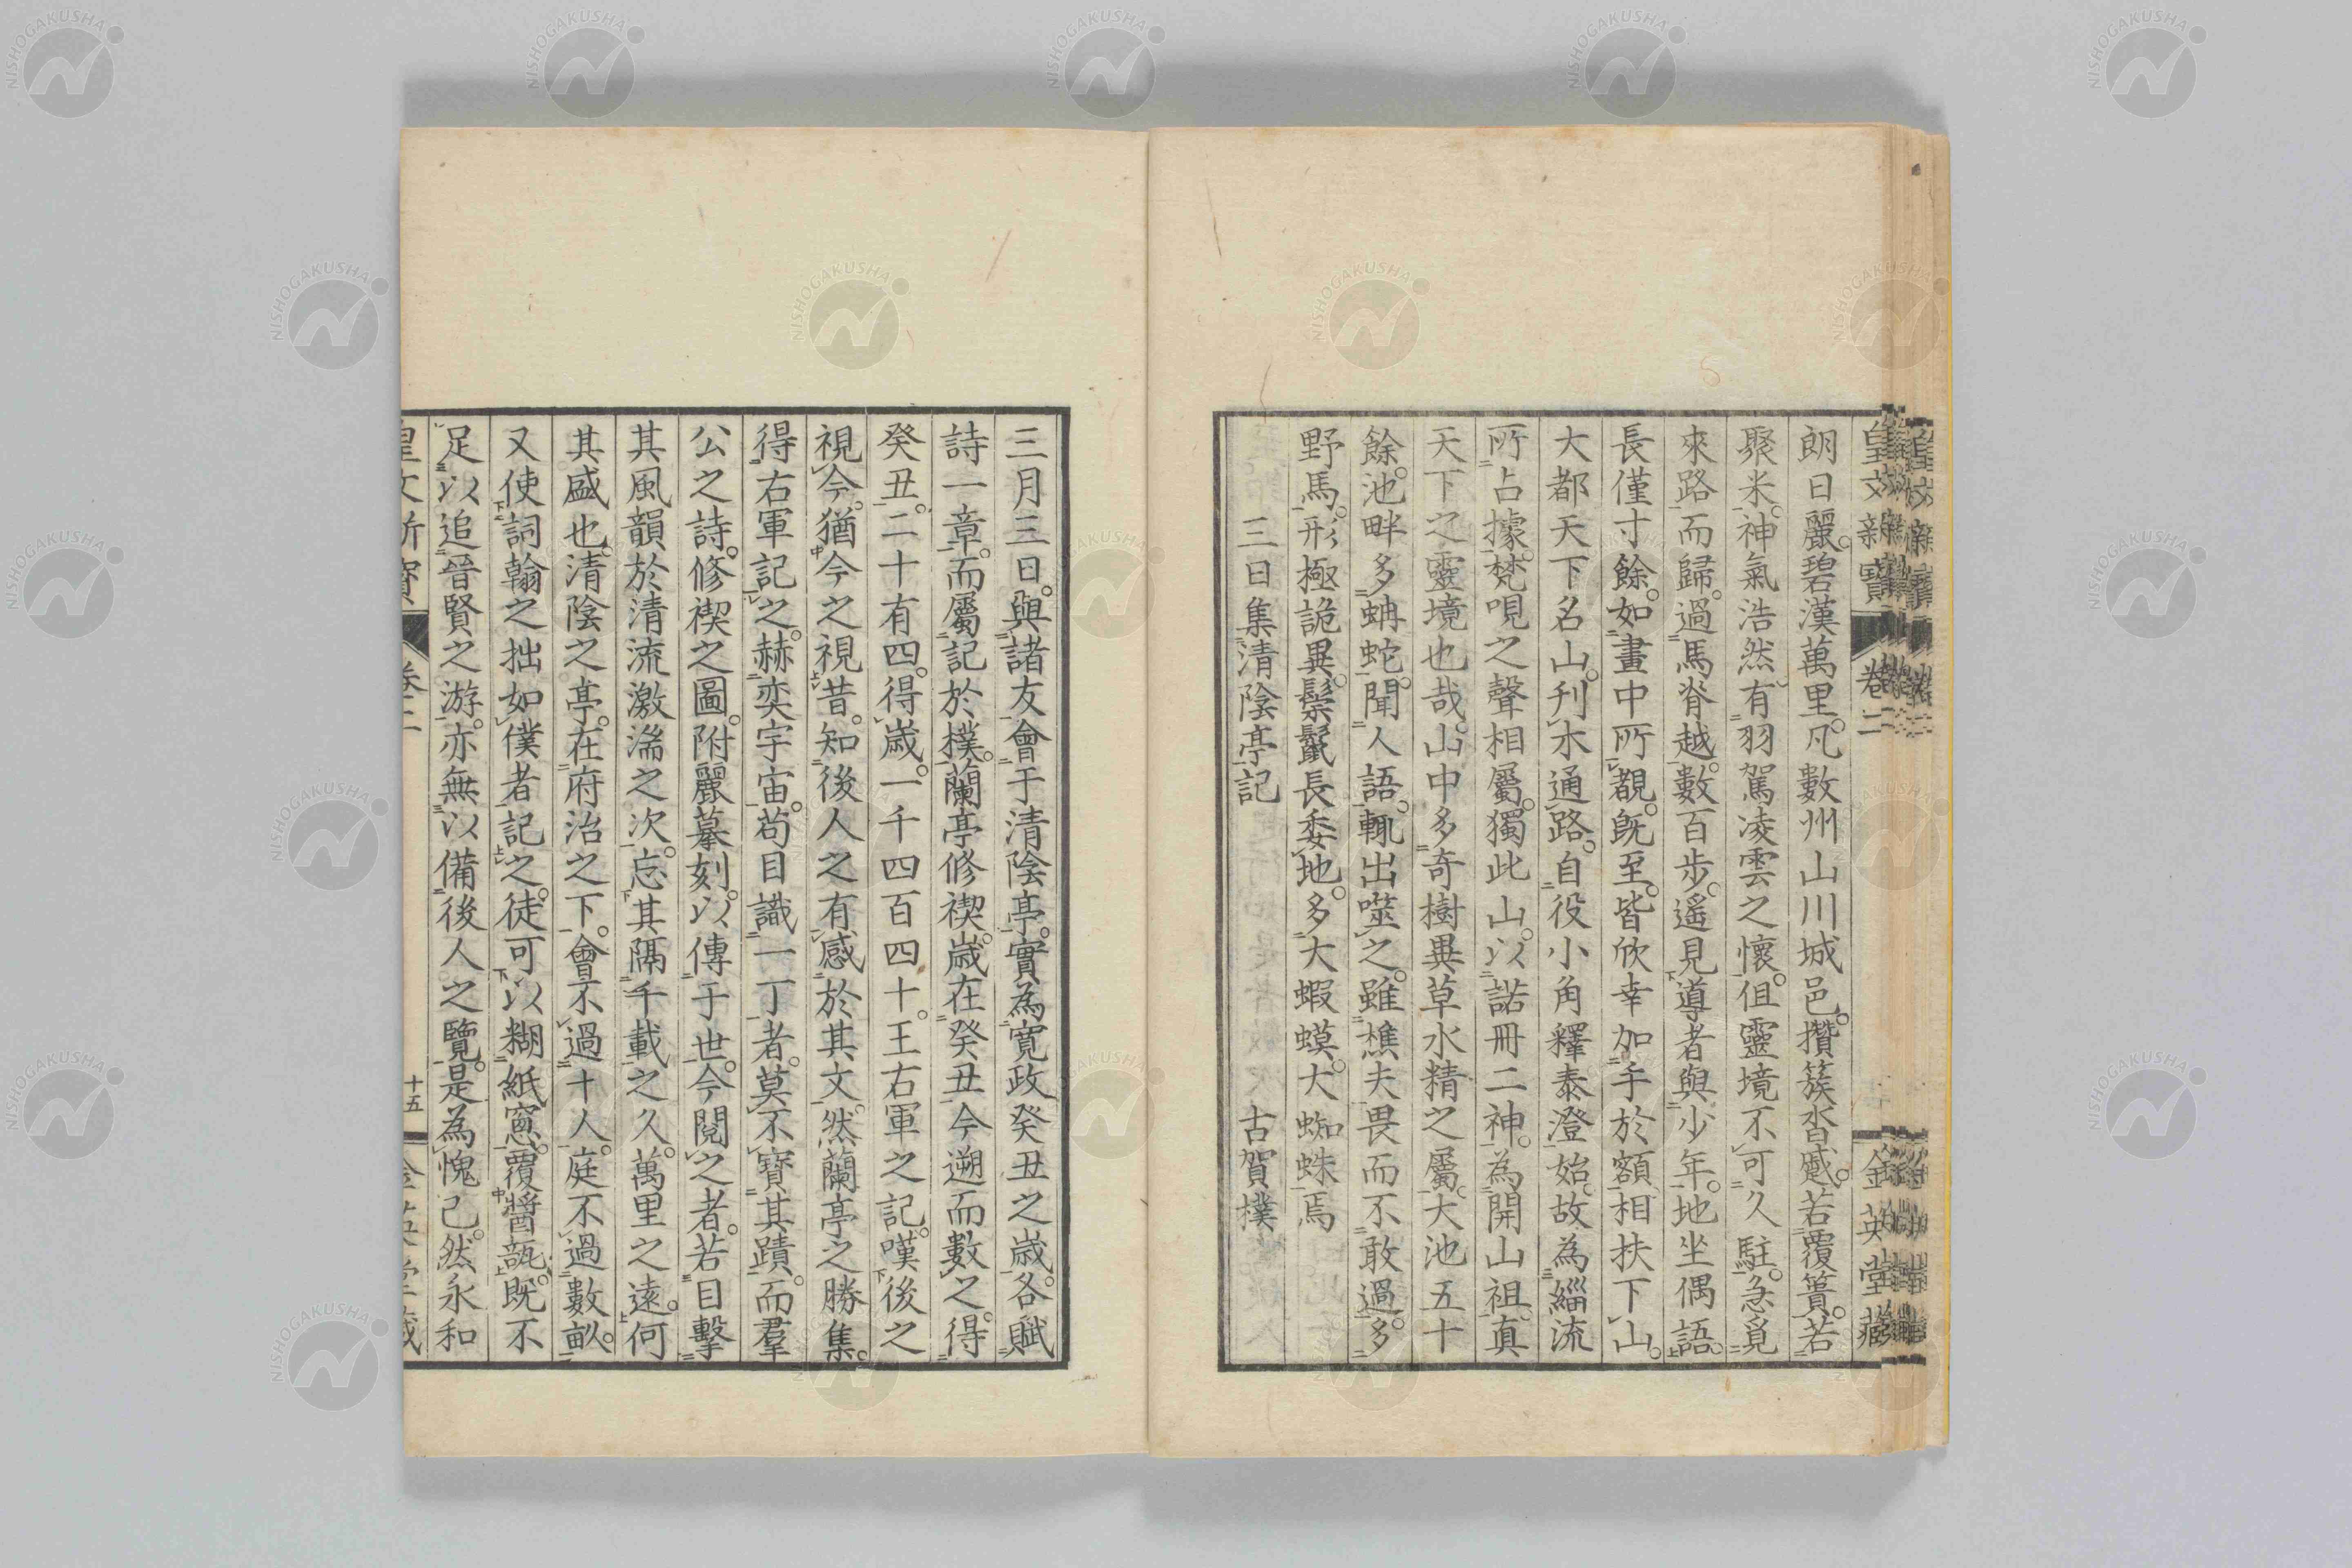 皇文新寶 卷二 金英堂藏
朗日麗。碧漢萬里。凡數州山川城邑。攢簇沓蹙。若覆簣。若
聚米。神氣浩然。有羽駕凌雲之懷。但靈境不可久駐。急覓
來路而歸。過馬脊越。數百步。遙見導者與少年。地坐偶語。
長僅寸餘。如畫中所覩。既至。皆欣幸加手於額。相扶下山。
大都天下名山。刋木通路。自役小角釋泰澄始。故為緇流
所占據。梵唄之聲相屬。獨此山。以諾冊二神。為開山祖。真
天下之靈境也哉。山中多奇樹異草水精之屬。大池五十
餘。池畔多蚺蛇。聞人語。輒出噬之。雖樵夫畏而不敢過。多
野馬。形極詭異。鬃鬣長委地。多大蝦蟆。大蜘蛛焉
三日集清陰亭記 古賀樸
三月三日。與諸友會于清陰亭。實為寬政癸丑之歲。各賦
詩一章。而屬記於樸。蘭亭修禊。歲在癸丑。今遡而數之。得
癸丑。二十有四。得歲。一千四百四十。王右軍之記。嘆後之
視今。猶今之視昔。知後人之有感於其文。然蘭亭之勝集。
得右軍記之。赫奕宇宙。苟目識一丁者。莫不寶其蹟。而羣
公之詩。修禊之圖。附麗摹刻。以傳于世。今閱之者。若目擊
其風韻於清流激湍之次。忘其隔千載之久。萬里之遠。何
其盛也。清陰之亭。在府治之下。會不過十人。庭不過數畝。
又使詞翰之拙如僕者記之。徒可以糊紙窓。覆醬瓿。既不
足以追晉賢之游。亦無以備後人之覽。是為愧已。然永和
皇文新寶 卷二 十五 金英堂藏
NISHOGAKUSHA